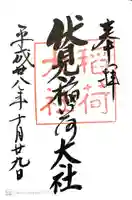 奉拝
伏見稲荷大社
平成廿八年十月廿九日
稲荷
大社